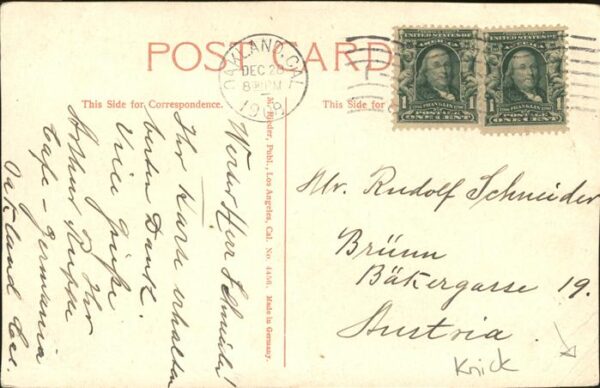 POST CARD
OAKLAND, CAL.
DEC 28
8 PM
190
UNITED STATES OF AMERICA
1 FRANKLIN 1
POSTAGE
ONE CENT
UNITED STATES OF AMERICA
1 FRANKLIN 1
POSTAGE
ONE CENT
This Side for Correspondence.
This Side for
M. Rieder, Publ., Los Angeles, Cal. No. 4456. Made in Germany.
Werter Herr Schneider!
Ihr Karte erhalten
besten Dank.
Viele Grüße
Ihr
Arthur
Cafe - Germania
Oakland Cal.
Mr. Rudolf Schneider
Brünn
Bäkergasse 19.
Austria
Knick